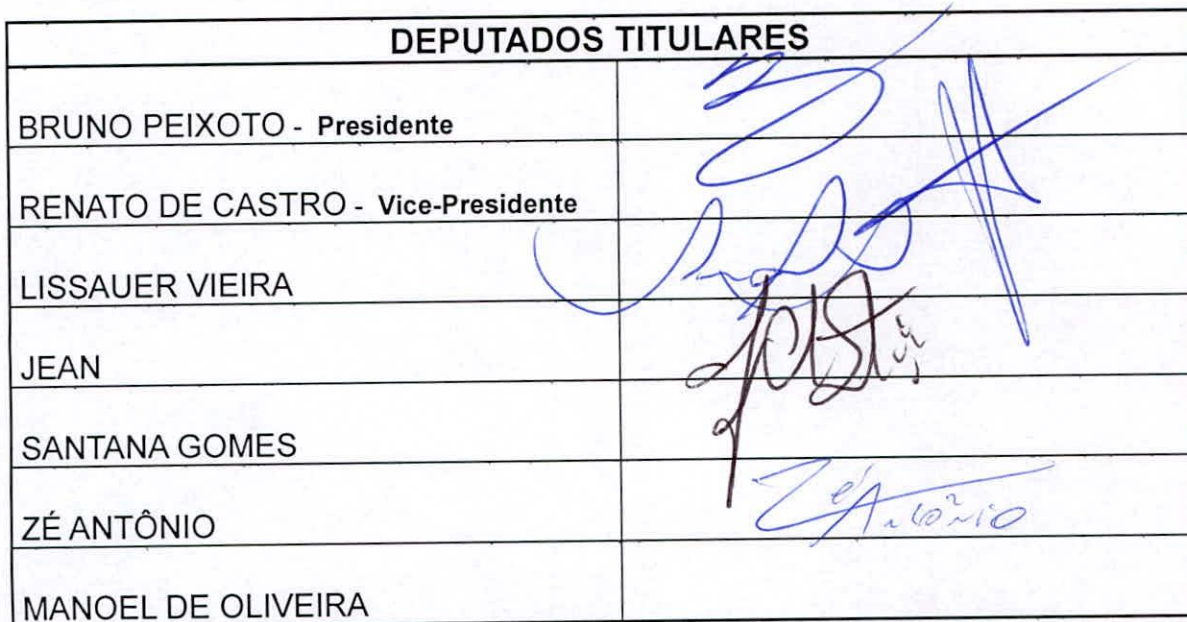 DEPUTADOS TITULARES
BRUNO PEIXOTO - Presidente
RENATO DE CASTRO - Vice-Presidente
LISSAUER VIEIRA
JEAN
SANTANA GOMES
ZÉ ANTÔNIO
Zé Antônio
MANOEL DE OLIVEIRA